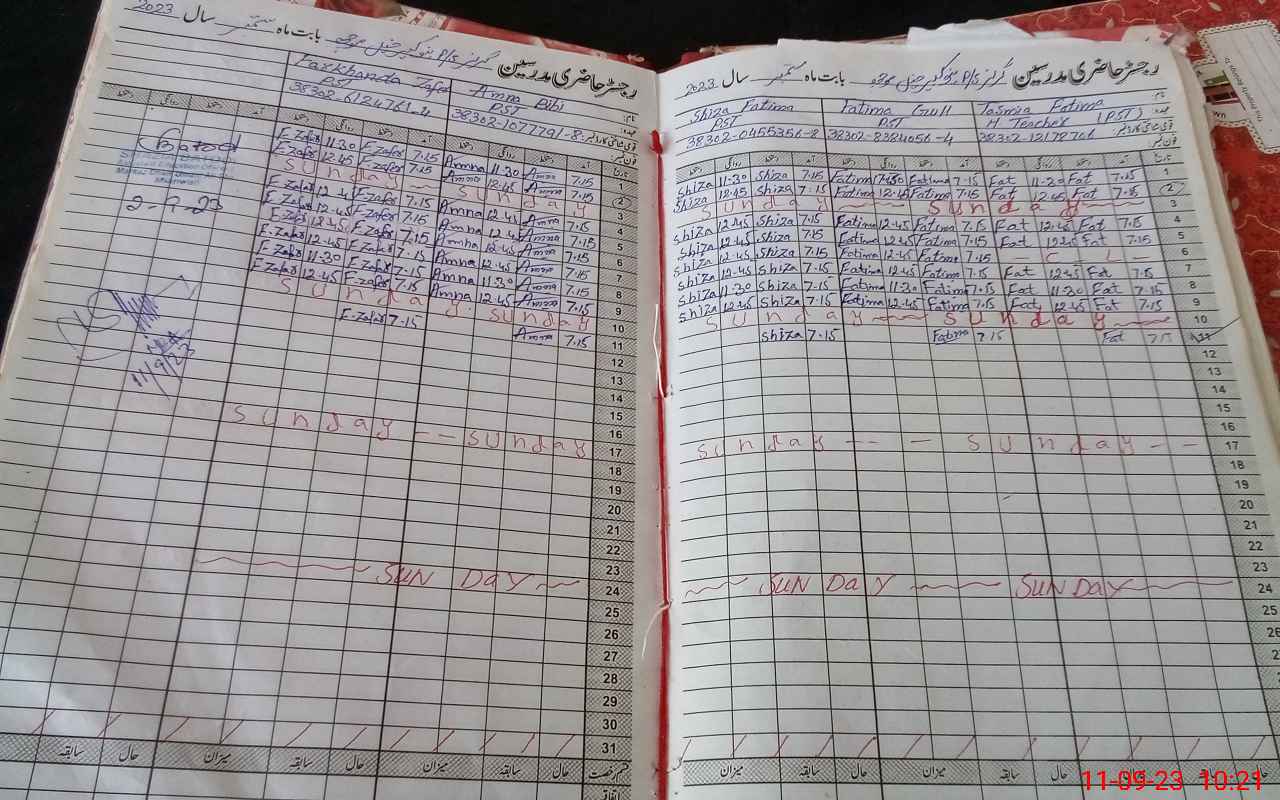 رجسٹر حاضری مدرسین گرلز P/S بابت ماہ ستمبر سال 2023
Farkhanda Zafar Amna Bibi
PST PST
38302-6124761-4 38302-1077791-8
E-Zafar 11.30 E-Zafar 7.15 Amna 11.30 Amna 7.15 1
E-Zafar 12.45 E-Zafar 7.15 Amna 12.45 Amna 7.15 2
Sunday Sunday 3
E-Zafar 12.45 E-Zafar 7.15 Amna 12.45 Amna 7.15 4
E-Zafar 12.45 E-Zafar 7.15 Amna 12.45 Amna 7.15 5
E-Zafar 12.45 E-Zafar 7.15 Amna 12.45 Amna 7.15 6
E-Zafar 12.45 E-Zafar 7.15 Amna 12.45 Amna 7.15 7
E-Zafar 11.30 E-Zafar 7.15 Amna 11.30 Amna 7.15 8
E-Zafar 12.45 E-Zafar 7.15 Amna 12.45 Amna 7.15 9
Sunday Sunday 10
E-Zafar 7.15 Amna 7.15 11
12
13
14
15
16
Sunday -- Sunday 17
18
19
20
21
22
23
SUN DAY 24
25
26
27
28
29
30
31
سابقہ حال میزان سابقہ حال میزان سابقہ حال قسم رخصت
اتفاقی
2-9-23
11/9/23
رجسٹر حاضری مدرسین گرلز P/S بابت ماہ ستمبر سال 2023
Shiza Fatima Fatima Gull Tasmia Fatima
PST PST H Teacher (PST)
38302-0455356-8 38302-8384056-4 38302-12178761
Shiza 11.30 Shiza 7.15 Fatima 11.30 Fatima 7.15 Fat 11.30 Fat 7.15 1
Shiza 12.45 Shiza 7.15 Fatima 12.45 Fatima 7.15 Fat 12.45 Fat 7.15 2
Sunday Sunday 3
Shiza 12.45 Shiza 7.15 Fatima 12.45 Fatima 7.15 Fat 12.45 Fat 7.15 4
Shiza 12.45 Shiza 7.15 Fatima 12.45 Fatima 7.15 Fat 12.45 Fat 7.15 5
Shiza 12.45 Shiza 7.15 Fatima 12.45 Fatima 7.15 - C - L - 6
Shiza 12.45 Shiza 7.15 Fatima 12.45 Fatima 7.15 Fat 12.45 Fat 7.15 7
Shiza 11.30 Shiza 7.15 Fatima 11.30 Fatima 7.15 Fat 11.30 Fat 7.15 8
Shiza 12.45 Shiza 7.15 Fatima 12.45 Fatima 7.15 Fat 12.45 Fat 7.15 9
Sunday Sunday 10
Shiza 7.15 Fatima 7.15 Fat 7.15 11
12
13
14
15
16
Sunday -- - Sunday -- 17
18
19
20
21
22
23
SUN DAY SUNDAY 24
25
26
28
29
30
31
میزان سابقہ حال میزان سابقہ حال
11-09-23 10:21